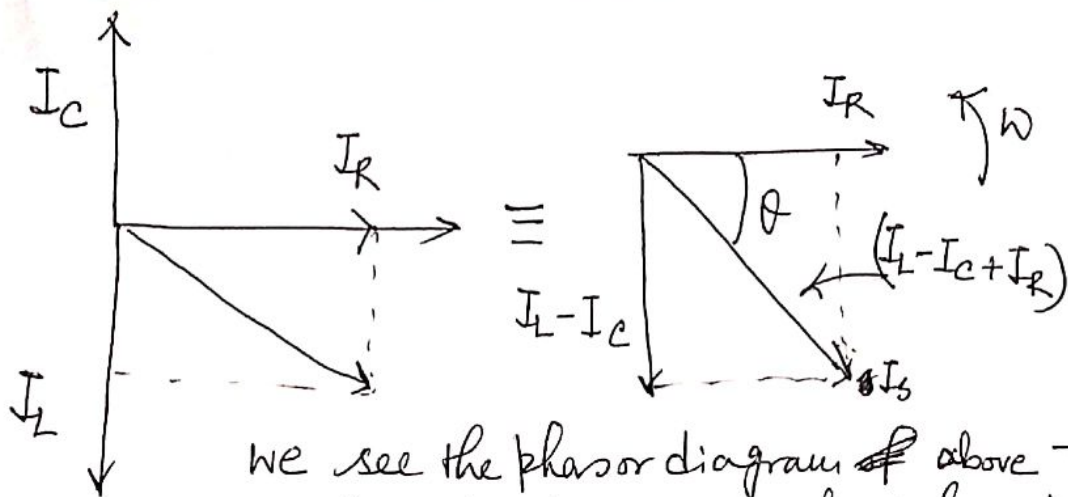 I_C
I_R
I_L
≡
I_R
ω
θ
(I_L - I_C + I_R)
I_L - I_C
I_S
we see the phasor diagram above -